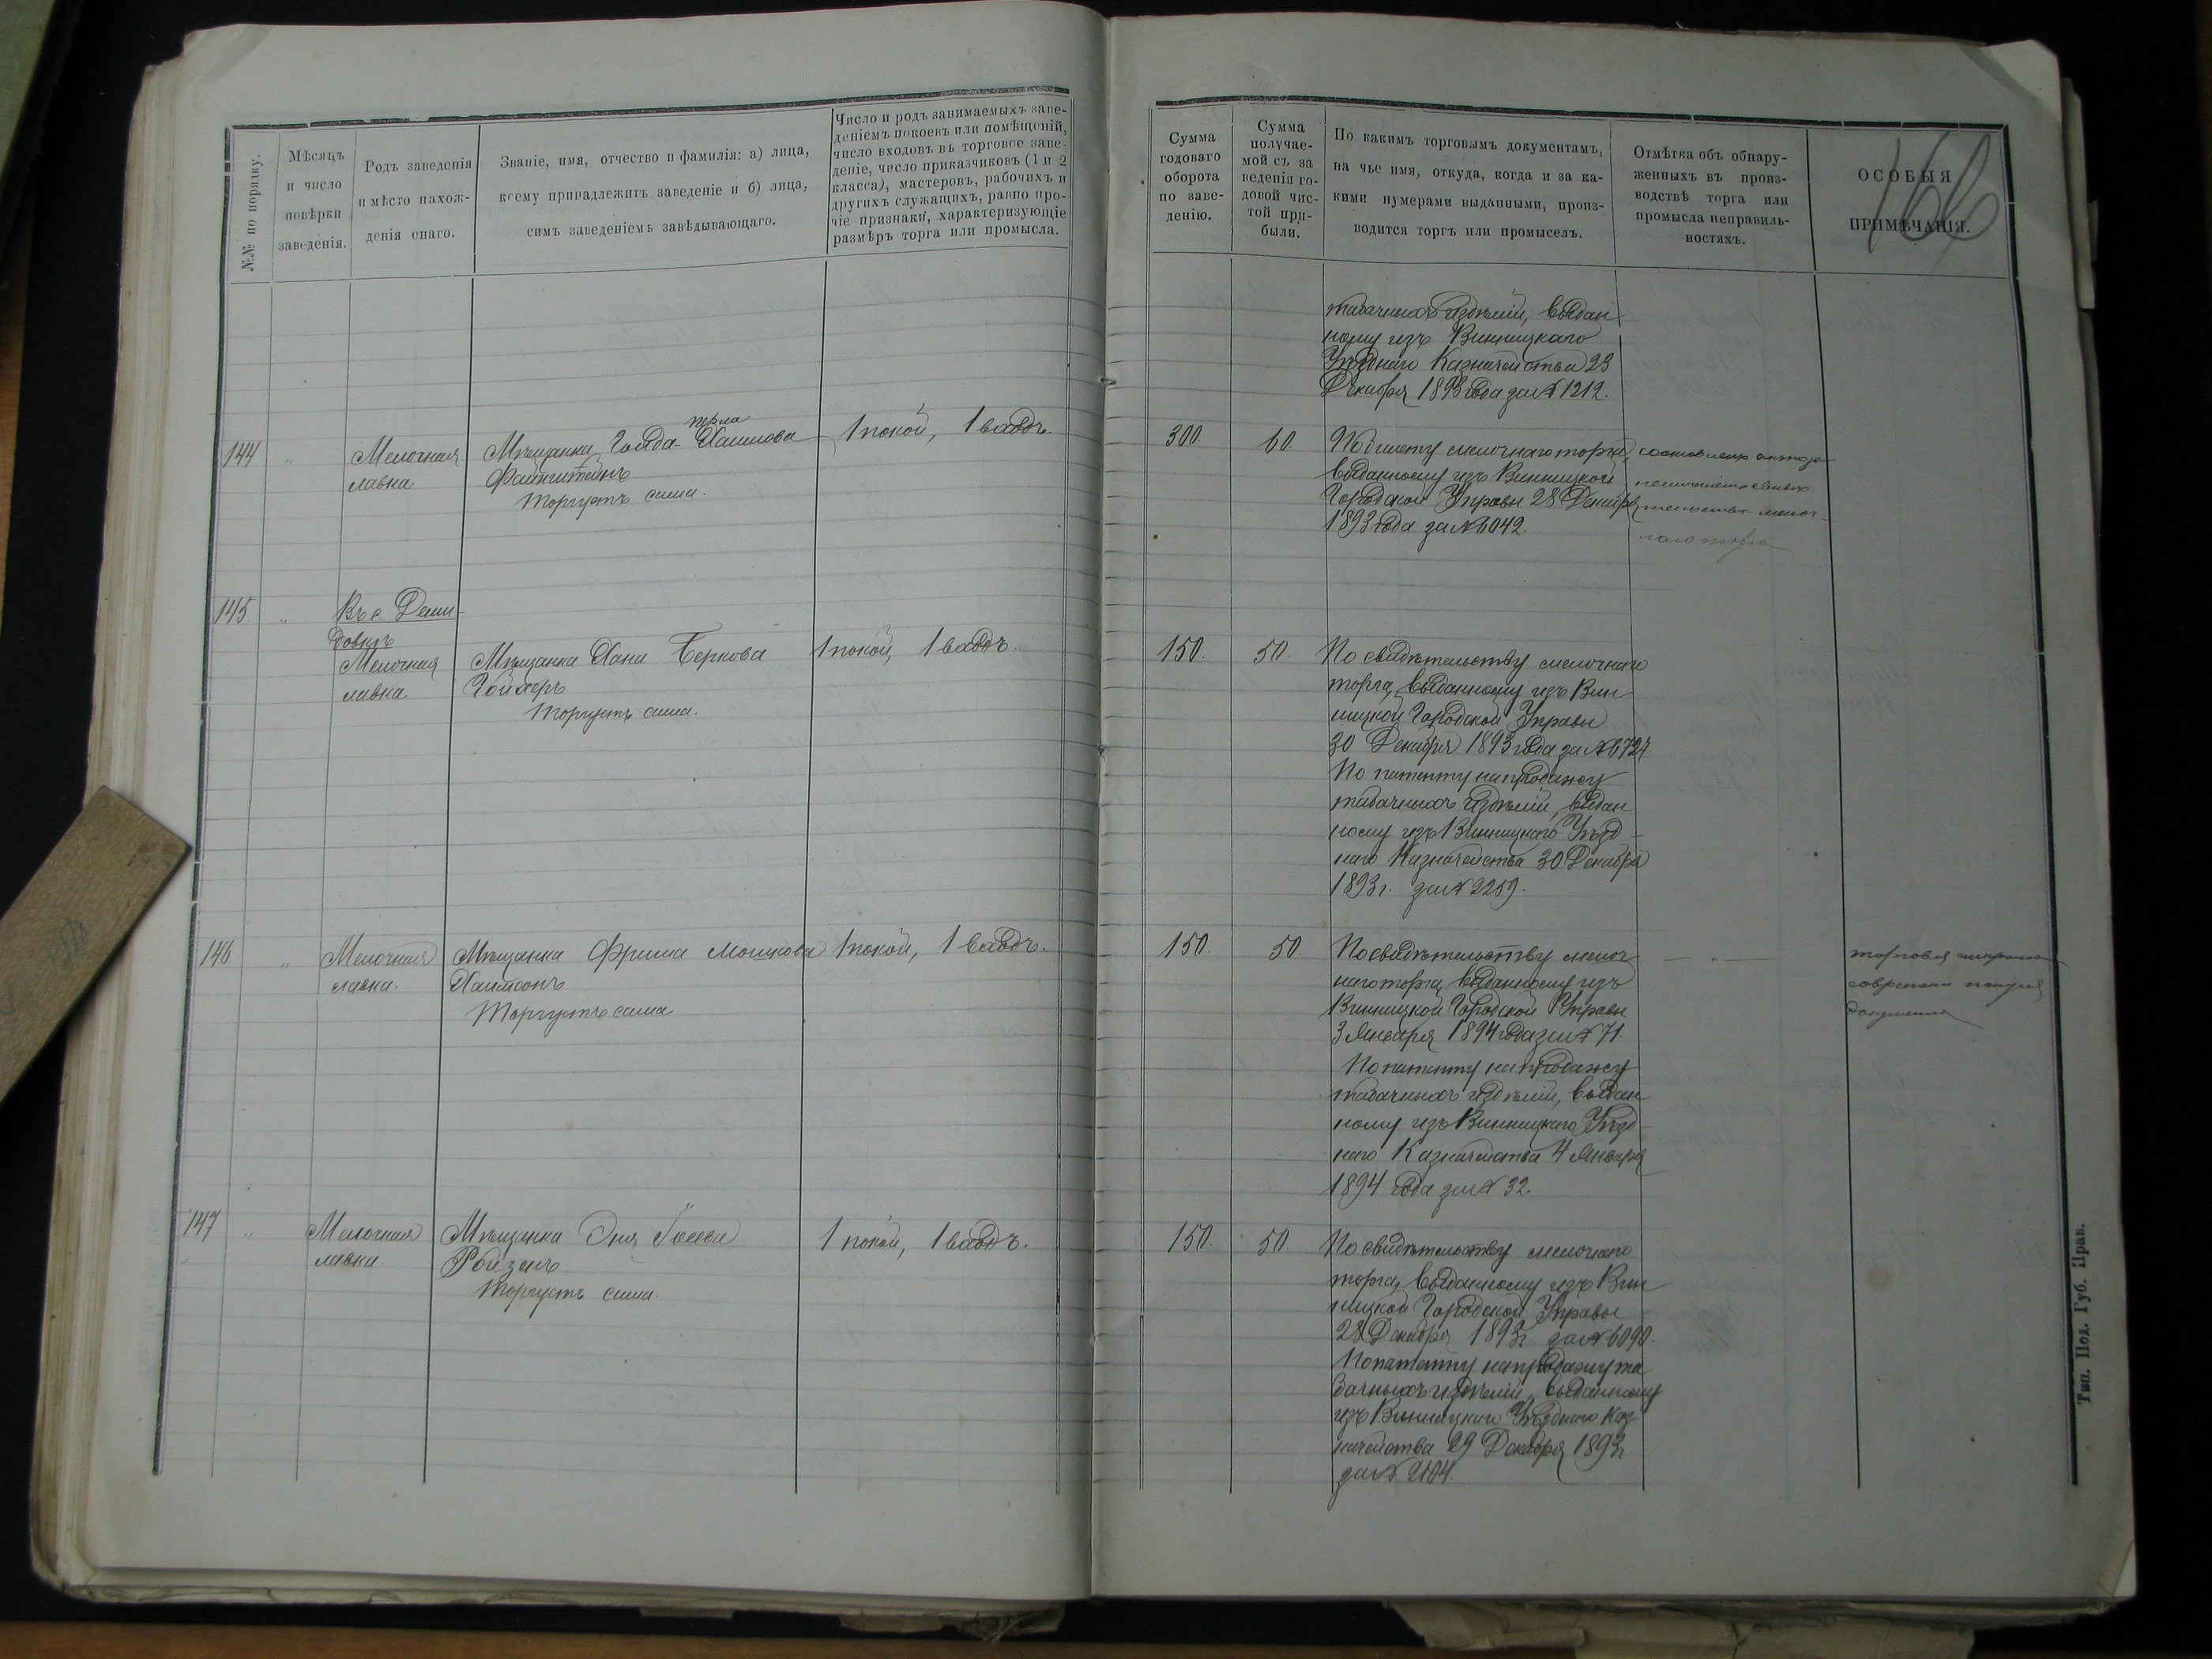 №№ по порядку.
Мѣсяцъ
и число
повѣрки
заведенія.
Родъ заведенія
и мѣсто нахож-
денія онаго.
Званіе, имя, отчество и фамилія: а) лица,
коему принадлежитъ заведеніе и б) лица,
симъ заведеніемъ завѣдывающаго.
Число и родъ занимаемыхъ заве-
деніемъ покоевъ или помѣщеній,
число входовъ въ торговое заве-
деніе, число приказчиковъ (1 и 2
класса), мастеровъ, рабочихъ и
другихъ служащихъ, равно про-
чіе признаки, характеризующіе
размѣръ торга или промысла.
144
"
Мелочная
лавка
перла
Мѣщанка Гольда-Хаимова
Файнштейнъ
торгуетъ сама.
1 покой, 1 входъ.
145.
"
Въ с. Деми-
довкѣ
Мелочная
лавка
Мѣщанка Хана Беркова
Гойхеръ
торгуетъ сама.
1 покой, 1 входъ.
146
"
Мелочная
лавка.
Мѣщанка Фрима Мошкова
Хаимсонъ
Торгуетъ сама
1 покой, 1 входъ.
147
"
Мелочная
лавка.
Мѣщанка Эня
Ройзенъ
торгуетъ сама.
1 покой, 1 входъ.
Сумма
годоваго
оборота
по заве-
денію.
Сумма
получае-
мой съ за
веденія го-
довой чис-
той при-
были.
По какимъ торговымъ документамъ,
на чье имя, откуда, когда и за ка-
кими нумерами выданными, произ-
водится торгъ или промыселъ.
Отмѣтка объ обнару-
женныхъ въ произ-
водствѣ торга или
промысла неправиль-
ностяхъ.
ОСОБЫЯ
ПРИМѢЧАНІЯ.
166
табачныхъ издѣлій, выдан
ному изъ Винницкаго
Уѣзднаго Казначейства 23
Декабря 1893 года за № 1212.
300
60.
По билету мелочнаго торга,
выданному изъ Винницкой
Городской Управы 28 Декабря
1893 года за № 6042.
наго торга
150.
50.
По свидѣтельству мелочнаго
торга, выданному изъ Вин
ницкой Городской Управы
30 Декабря 1893 года за № 6724.
По патенту на продажу
табачныхъ издѣлій, выдан
ному изъ Винницкаго Уѣзд-
наго Казначейства 30 Декабря
1893 г. за № 2259.
150.
50.
По свидѣтельству мелоч
наго торга, выданному изъ
Винницкой Городской Управы
3 Января 1894 года за № 71.
По патенту на продажу
табачныхъ издѣлій, выдан
ному изъ Винницкаго Уѣзд-
наго Казначейства 4 Января
1894 года за № 32.
— " —
документа
150.
50.
По свидѣтельству мелочнаго
торга, выданному изъ Вин
ницкой Городской Управы
28 Декабря 1893 г. за № 6090.
По патенту на продажу та
бачныхъ издѣлій, выданному
изъ Винницкаго Уѣзднаго Каз
начейства 29 Декабря 1893 г.
за № 2104.
Тип. Под. Губ. Прав.